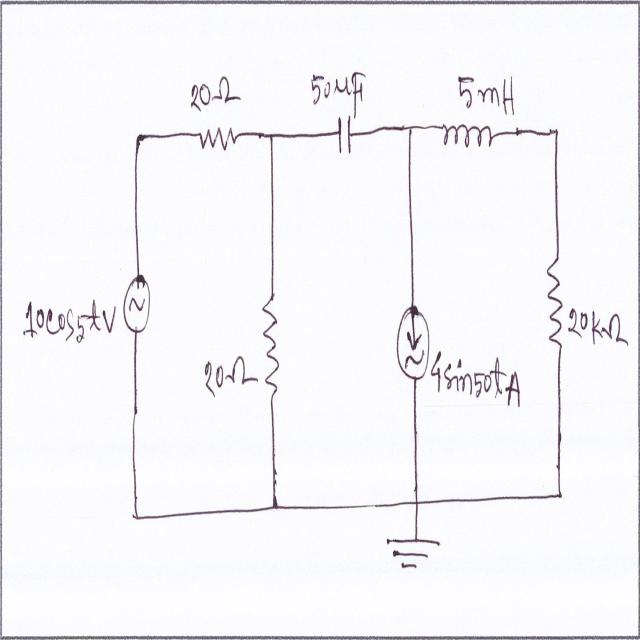 20Ω
50μF
5mH
10cos5tV
20Ω
4sin50tA
20kΩ